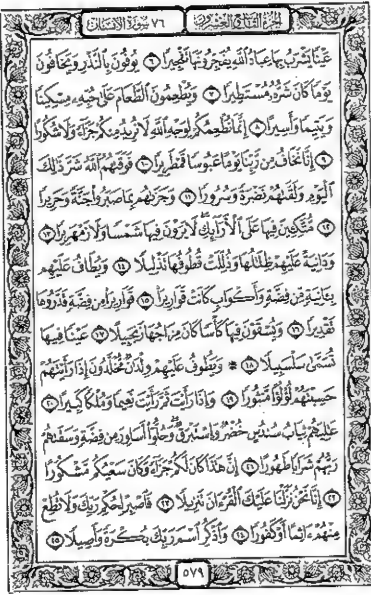 الجزء التاسع والعشرون ٧٦ سورة الإنسان
عَيْنًا يَشْرَبُ بِهَا عِبَادُ ٱللَّهِ يُفَجِّرُونَهَا تَفْجِيرًا ٦ يُوفُونَ بِٱلنَّذْرِ وَيَخَافُونَ
يَوْمًا كَانَ شَرُّهُۥ مُسْتَطِيرًا ٧ وَيُطْعِمُونَ ٱلطَّعَامَ عَلَىٰ حُبِّهِۦ مِسْكِينًا
وَيَتِيمًا وَأَسِيرًا ٨ إِنَّمَا نُطْعِمُكُمْ لِوَجْهِ ٱللَّهِ لَا نُرِيدُ مِنكُمْ جَزَآءً وَلَا شُكُورًا
٩ إِنَّا نَخَافُ مِن رَّبِّنَا يَوْمًا عَبُوسًا قَمْطَرِيرًا ١٠ فَوَقَىٰهُمُ ٱللَّهُ شَرَّ ذَٰلِكَ
ٱلْيَوْمِ وَلَقَّىٰهُمْ نَضْرَةً وَسُرُورًا ١١ وَجَزَىٰهُم بِمَا صَبَرُوا۟ جَنَّةً وَحَرِيرًا
١٢ مُّتَّكِـِٔينَ فِيهَا عَلَى ٱلْأَرَآئِكِ ۖ لَا يَرَوْنَ فِيهَا شَمْسًا وَلَا زَمْهَرِيرًا ١٣
وَدَانِيَةً عَلَيْهِمْ ظِلَٰلُهَا وَذُلِّلَتْ قُطُوفُهَا تَذْلِيلًا ١٤ وَيُطَافُ عَلَيْهِم
بِـَٔانِيَةٍ مِّن فِضَّةٍ وَأَكْوَابٍ كَانَتْ قَوَارِيرَا۠ ١٥ قَوَارِيرَا۟ مِن فِضَّةٍ قَدَّرُوهَا
تَقْدِيرًا ١٦ وَيُسْقَوْنَ فِيهَا كَأْسًا كَانَ مِزَاجُهَا زَنجَبِيلًا ١٧ عَيْنًا فِيهَا
تُسَمَّىٰ سَلْسَبِيلًا ١٨ ۞ وَيَطُوفُ عَلَيْهِمْ وِلْدَٰنٌ مُّخَلَّدُونَ إِذَا رَأَيْتَهُمْ
حَسِبْتَهُمْ لُؤْلُؤًا مَّنثُورًا ١٩ وَإِذَا رَأَيْتَ ثَمَّ رَأَيْتَ نَعِيمًا وَمُلْكًا كَبِيرًا ٢٠
عَٰلِيَهُمْ ثِيَابُ سُندُسٍ خُضْرٌ وَإِسْتَبْرَقٌ ۖ وَحُلُّوٓا۟ أَسَاوِرَ مِن فِضَّةٍ وَسَقَىٰهُمْ
رَبُّهُمْ شَرَابًا طَهُورًا ٢١ إِنَّ هَٰذَا كَانَ لَكُمْ جَزَآءً وَكَانَ سَعْيُكُم مَّشْكُورًا
٢٢ إِنَّا نَحْنُ نَزَّلْنَا عَلَيْكَ ٱلْقُرْءَانَ تَنزِيلًا ٢٣ فَٱصْبِرْ لِحُكْمِ رَبِّكَ وَلَا تُطِعْ
مِنْهُمْ ءَاثِمًا أَوْ كَفُورًا ٢٤ وَٱذْكُرِ ٱسْمَ رَبِّكَ بُكْرَةً وَأَصِيلًا ٢٥
٥٧٩